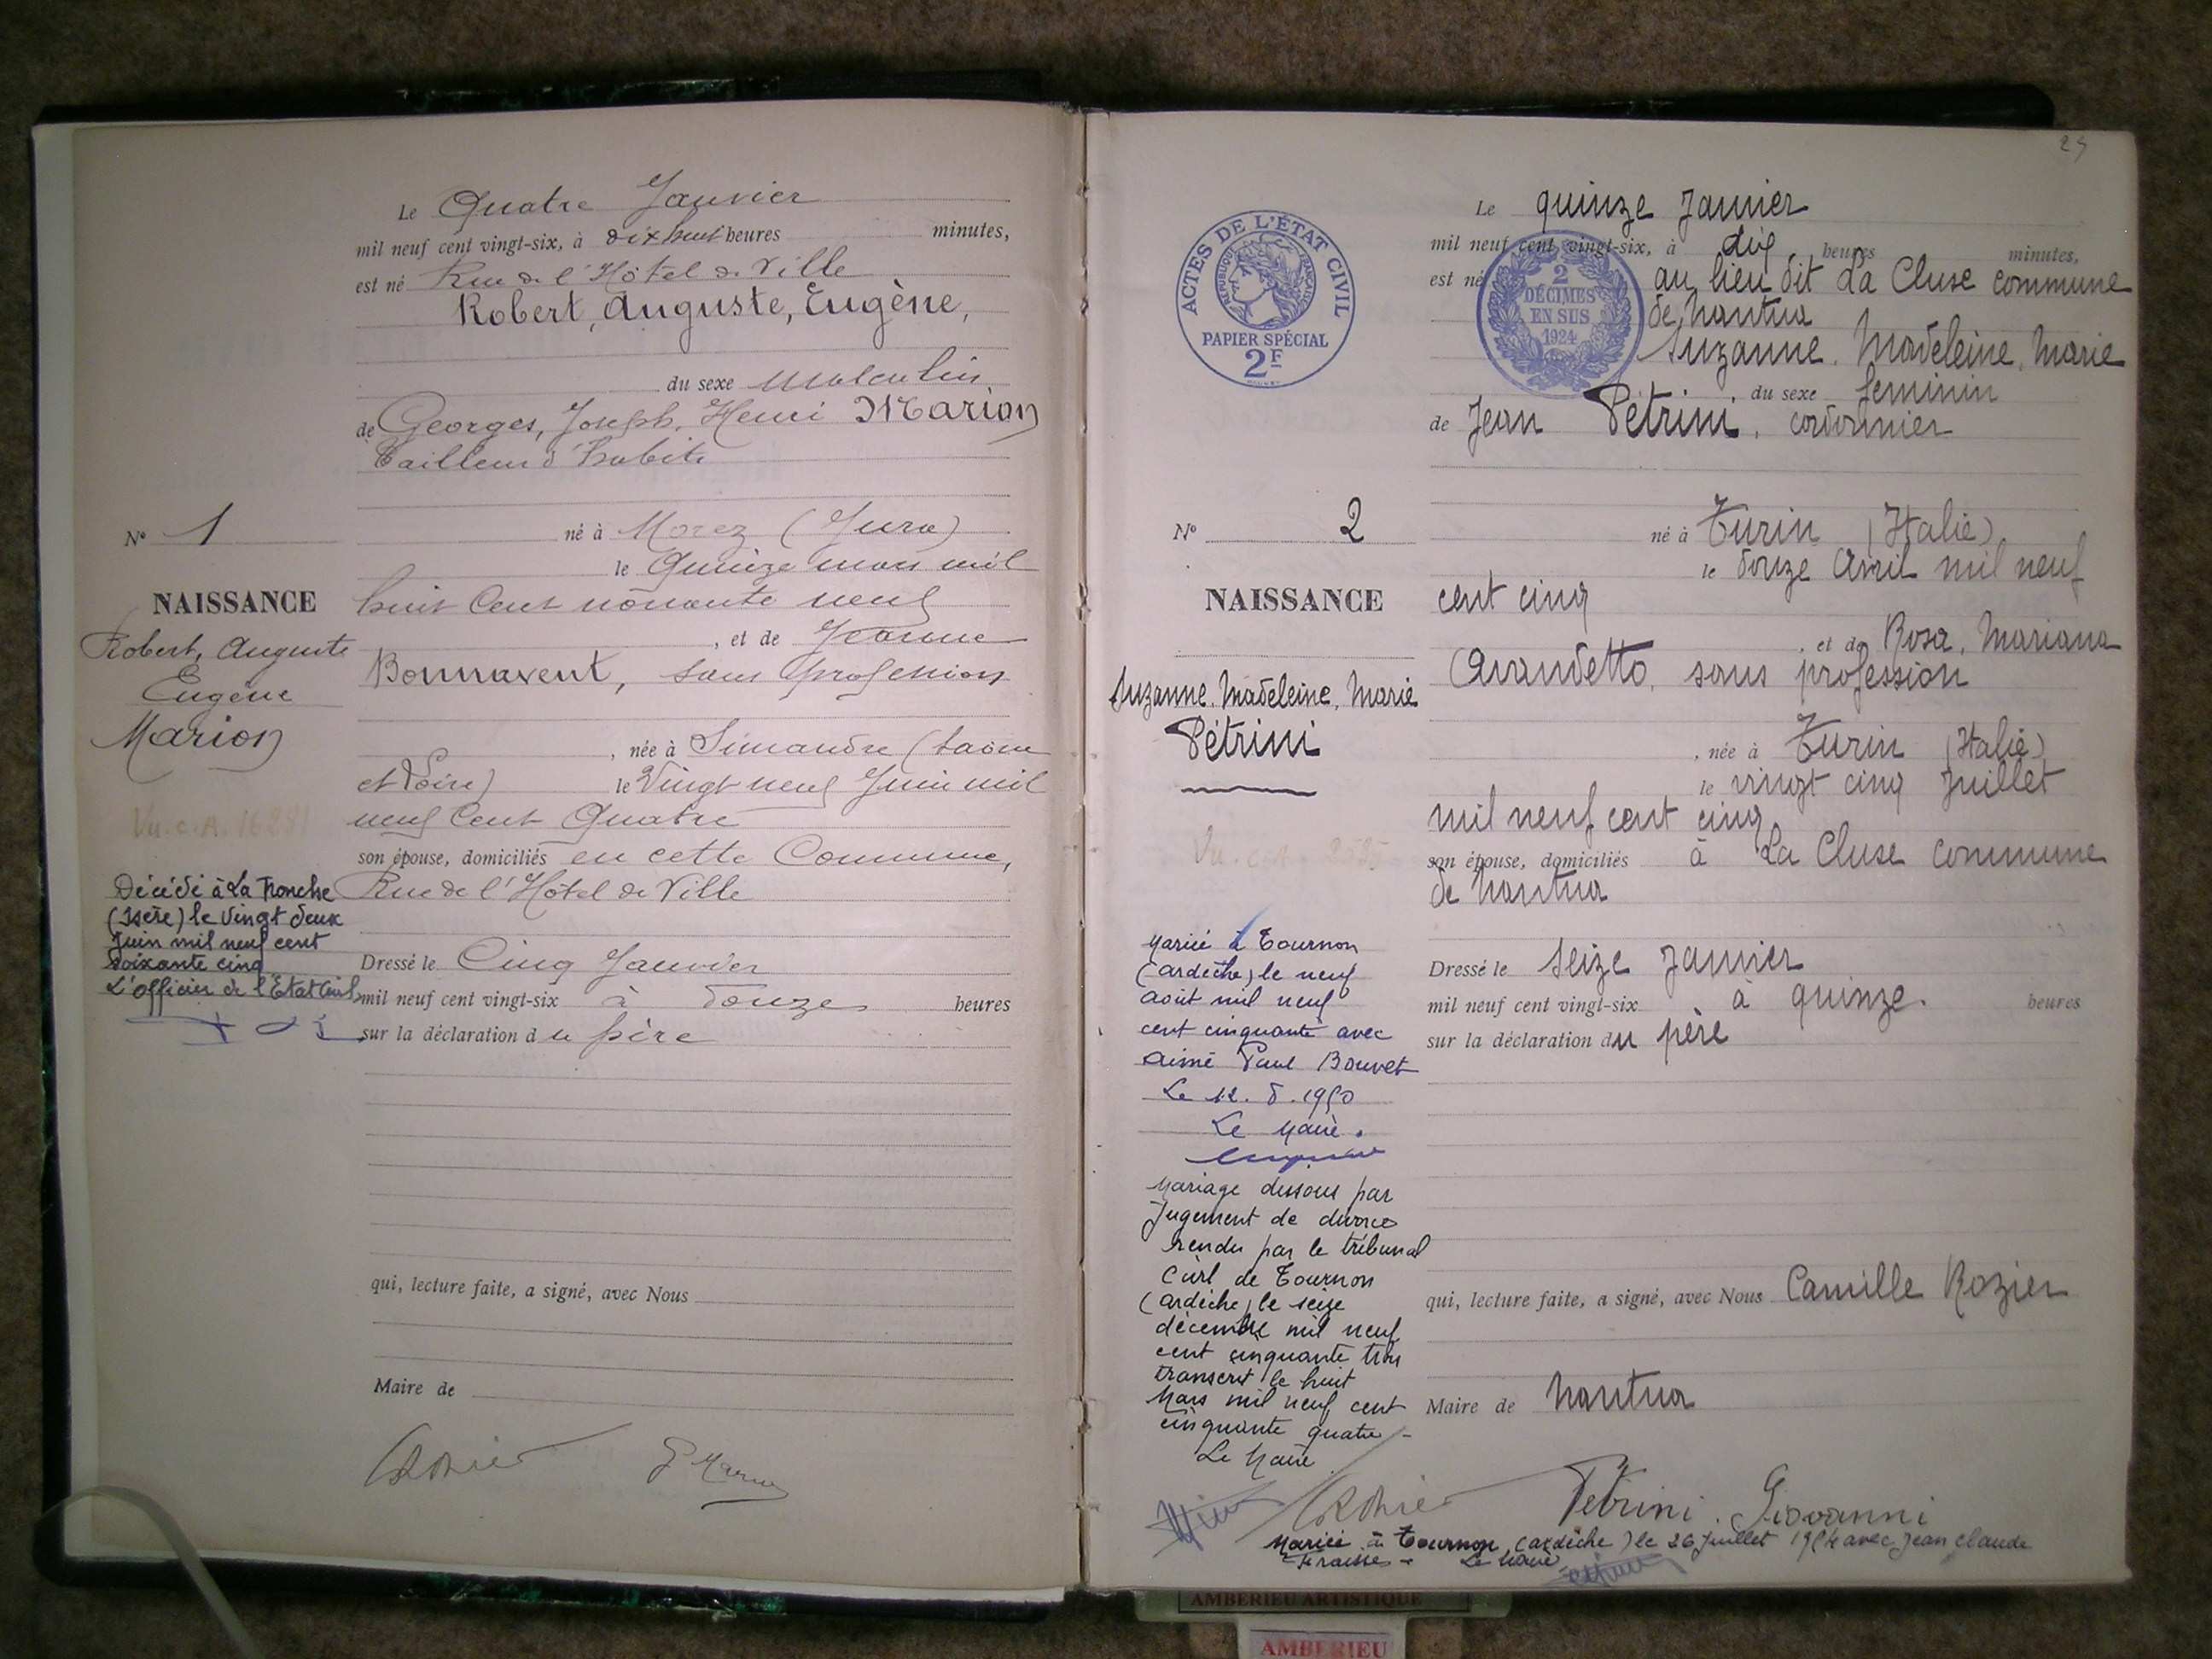 Le Quatre Janvier
mil neuf cent vingt-six, à dix huit heures minutes,
est né Rue de l'Hôtel de Ville
Robert, Auguste, Eugène,
du sexe masculin
de Georges, Joseph, Henri Marion
Tailleur d'habits
né à Morez (Jura)
le Quinze mars mil
huit cent nonante neuf
, et de Jeanne
Bonnavent, sans profession
, née à Simandre (Saône
et Loire) le Vingt neuf Juin mil
neuf cent Quatre
son épouse, domiciliés en cette Commune,
Rue de l'Hôtel de Ville
Dressé le Cinq Janvier
mil neuf cent vingt-six à douze heures
sur la déclaration du père
qui, lecture faite, a signé, avec Nous
Maire de
G Marion
N° 1
NAISSANCE
Robert, Auguste
Eugène
Marion
Vu.C.A. 16281
Décédé à La Tronche
(Isère) le Vingt deux
Juin mil neuf cent
soixante cinq
L'officier de l'Etat Civil
25
ACTES DE L'ÉTAT CIVIL
RÉPUBLIQUE FRANÇAISE
PAPIER SPÉCIAL
2F
2
DÉCIMES
EN SUS
1924
Le quinze Janvier
mil neuf cent vingt-six, à dix heures minutes,
est né au lieu dit La Cluse commune
de Nantua
Suzanne, Madeleine, Marie
, du sexe féminin
de Jean Pétrini, cordonnier
né à Turin (Italie)
le douze Avril mil neuf
cent cinq
, et de Rosa, Mariana
Avandetto, sans profession
, née à Turin (Italie)
le vingt cinq Juillet
mil neuf cent cinq
son épouse, domiciliés à La Cluse commune
de Nantua
Dressé le seize Janvier
mil neuf cent vingt-six à quinze heures
sur la déclaration du père
qui, lecture faite, a signé, avec Nous Camille Rozier
Maire de Nantua
Petrini Giovanni
N° 2
NAISSANCE
Suzanne, Madeleine, Marie
Pétrini
Vu.C.A.
Mariée à Tournon
(Ardèche) le neuf
août mil neuf
cent cinquante avec
Aimé Paul Bouvet
Le 12.8.1950
Le Maire.
Mariage dissous par
Jugement de divorce
rendu par le tribunal
Civil de Tournon
(Ardèche) le seize
décembre mil neuf
cent cinquante trois
transcrit le huit
Mars mil neuf cent
cinquante quatre -
Le Maire.
Mariée à Tournon (ardèche) le 26 Juillet 1954 avec Jean Claude
Fraisse - Le Maire
AMBERIEU ARTISTIQUE
AMBERIEU